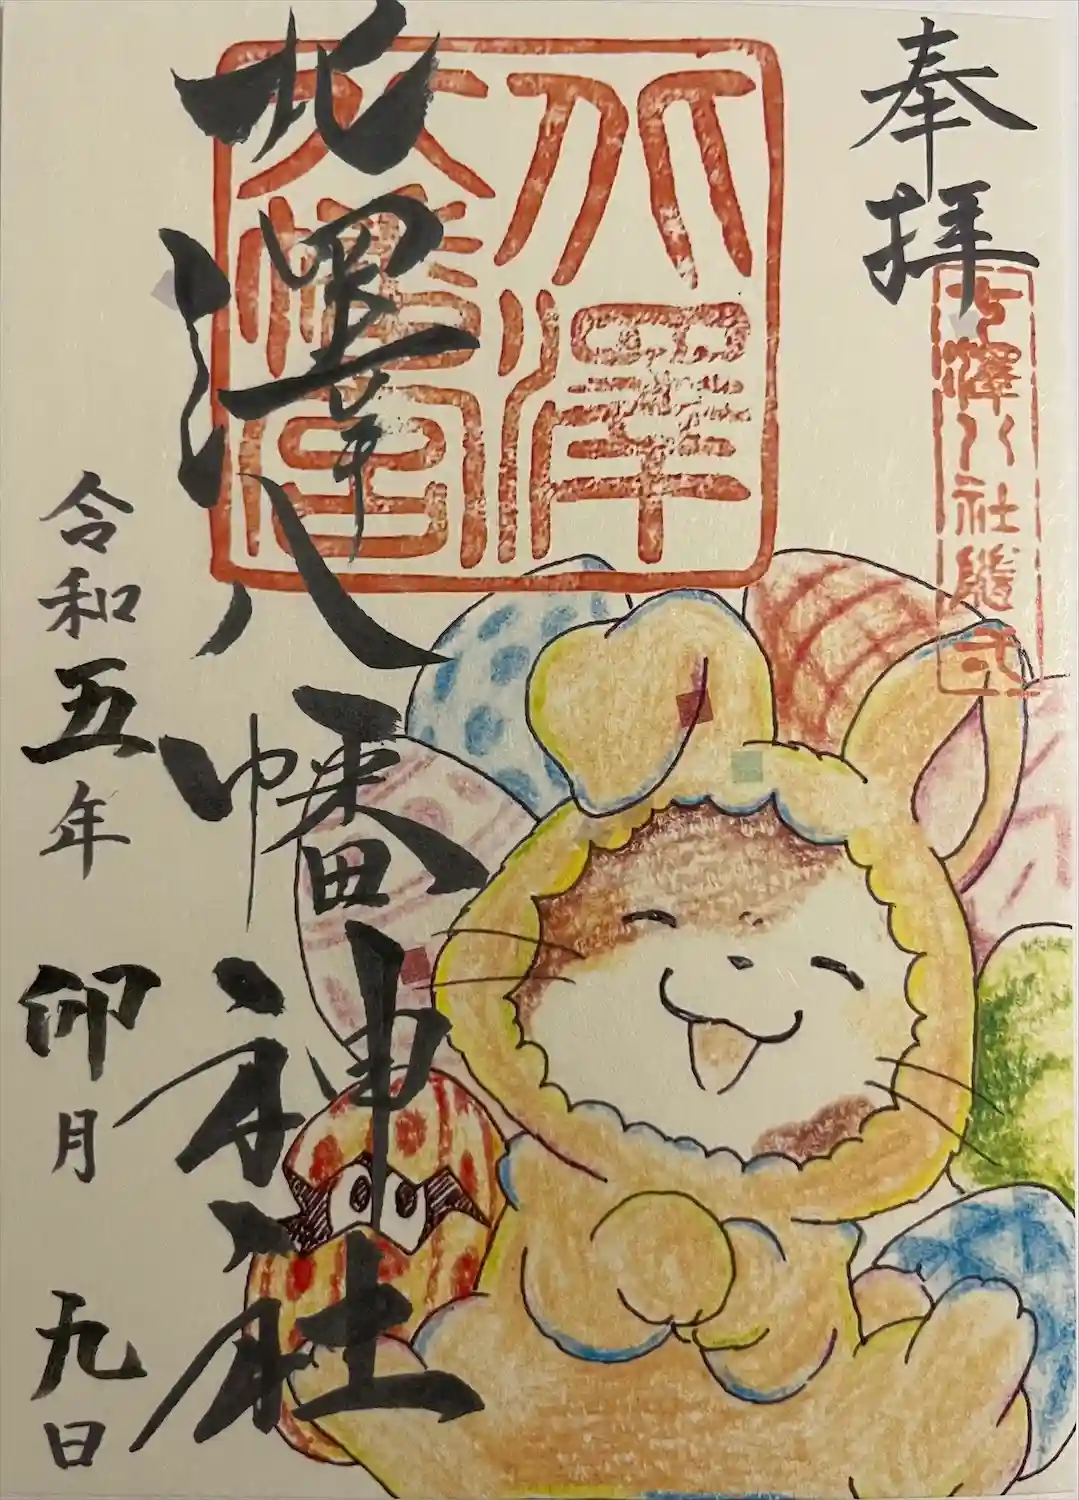 奉拝
七澤八社隨弌
北澤
八幡宮
北澤八幡神社
令和五年 卯月 九日